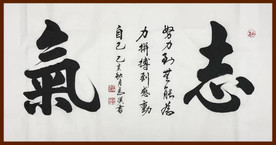 志氣
努力到無能為
力拼搏到感動
自己 己亥秋月書